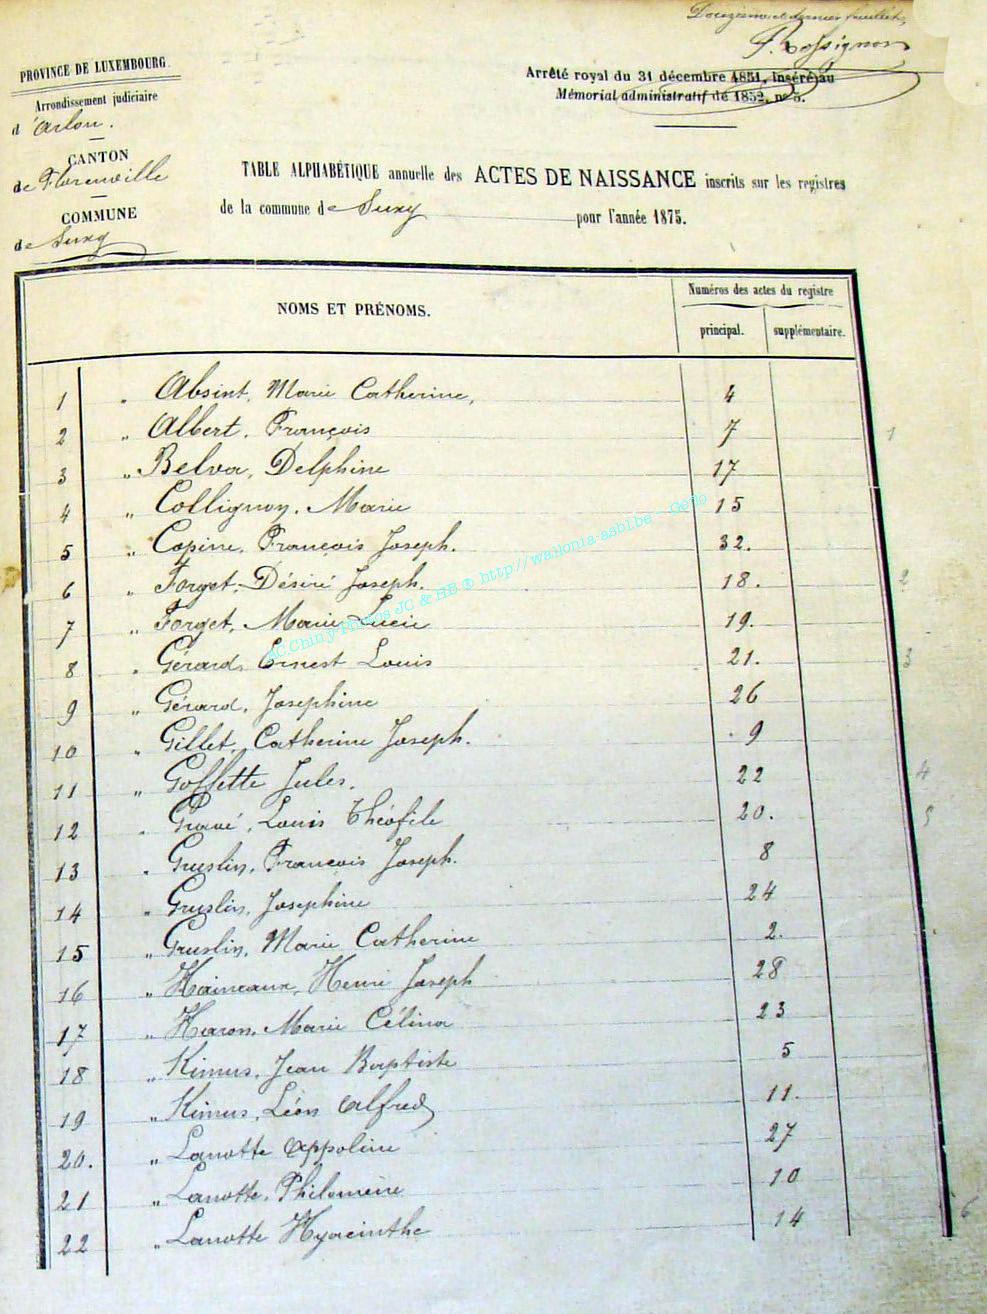 Douzième et dernier feuillet,
Rossignon
PROVINCE DE LUXEMBOURG.
Arrêté royal du 31 décembre 1851, inséré au
Mémorial administratif de 1852, nº 5.
Arrondissement judiciaire
d'Arlon.
CANTON
de Florenville
COMMUNE
de Suxy
TABLE ALPHABÉTIQUE annuelle des ACTES DE NAISSANCE inscrits sur les registres
de la commune de Suxy pour l'année 1875.
NOMS ET PRÉNOMS.
Numéros des actes du registre
principal. supplémentaire.
1 " Absint, Marie Catherine, 4
2 " Albert, François 7
3 " Belva, Delphine 17
4 " Collignon, Marie 15
5 " Copine, François Joseph. 32.
6 " Forget, Désiré Joseph. 18.
7 " Forget, Marie Lucie 19.
8 " Gérard, Ernest Louis 21.
9 " Gérard, Josephine 26
10 " Gillet, Catherine Joseph. 9
11 " Goffette Jules. 22
12 " Gravé, Louis Théofile 20.
13 " Gruslin, François Joseph. 8
14 " Gruslin, Josephine 24
15 " Gruslin, Marie Catherine 2.
16 " Haineaux, Henri Joseph 28
17 " Haron, Marie Célina 23
18 " Kimus, Jean Baptiste 5
19 " Kimus, Léon Alfred 11.
20. " Lanotte Appoline 27
21 " Lanotte, Philomène 10
22 " Lanotte Hyacinthe 14
1
2
3
4
5
6
AC Chiny Photos JC & HB ® http//wallonia-asbl.be - Gefo